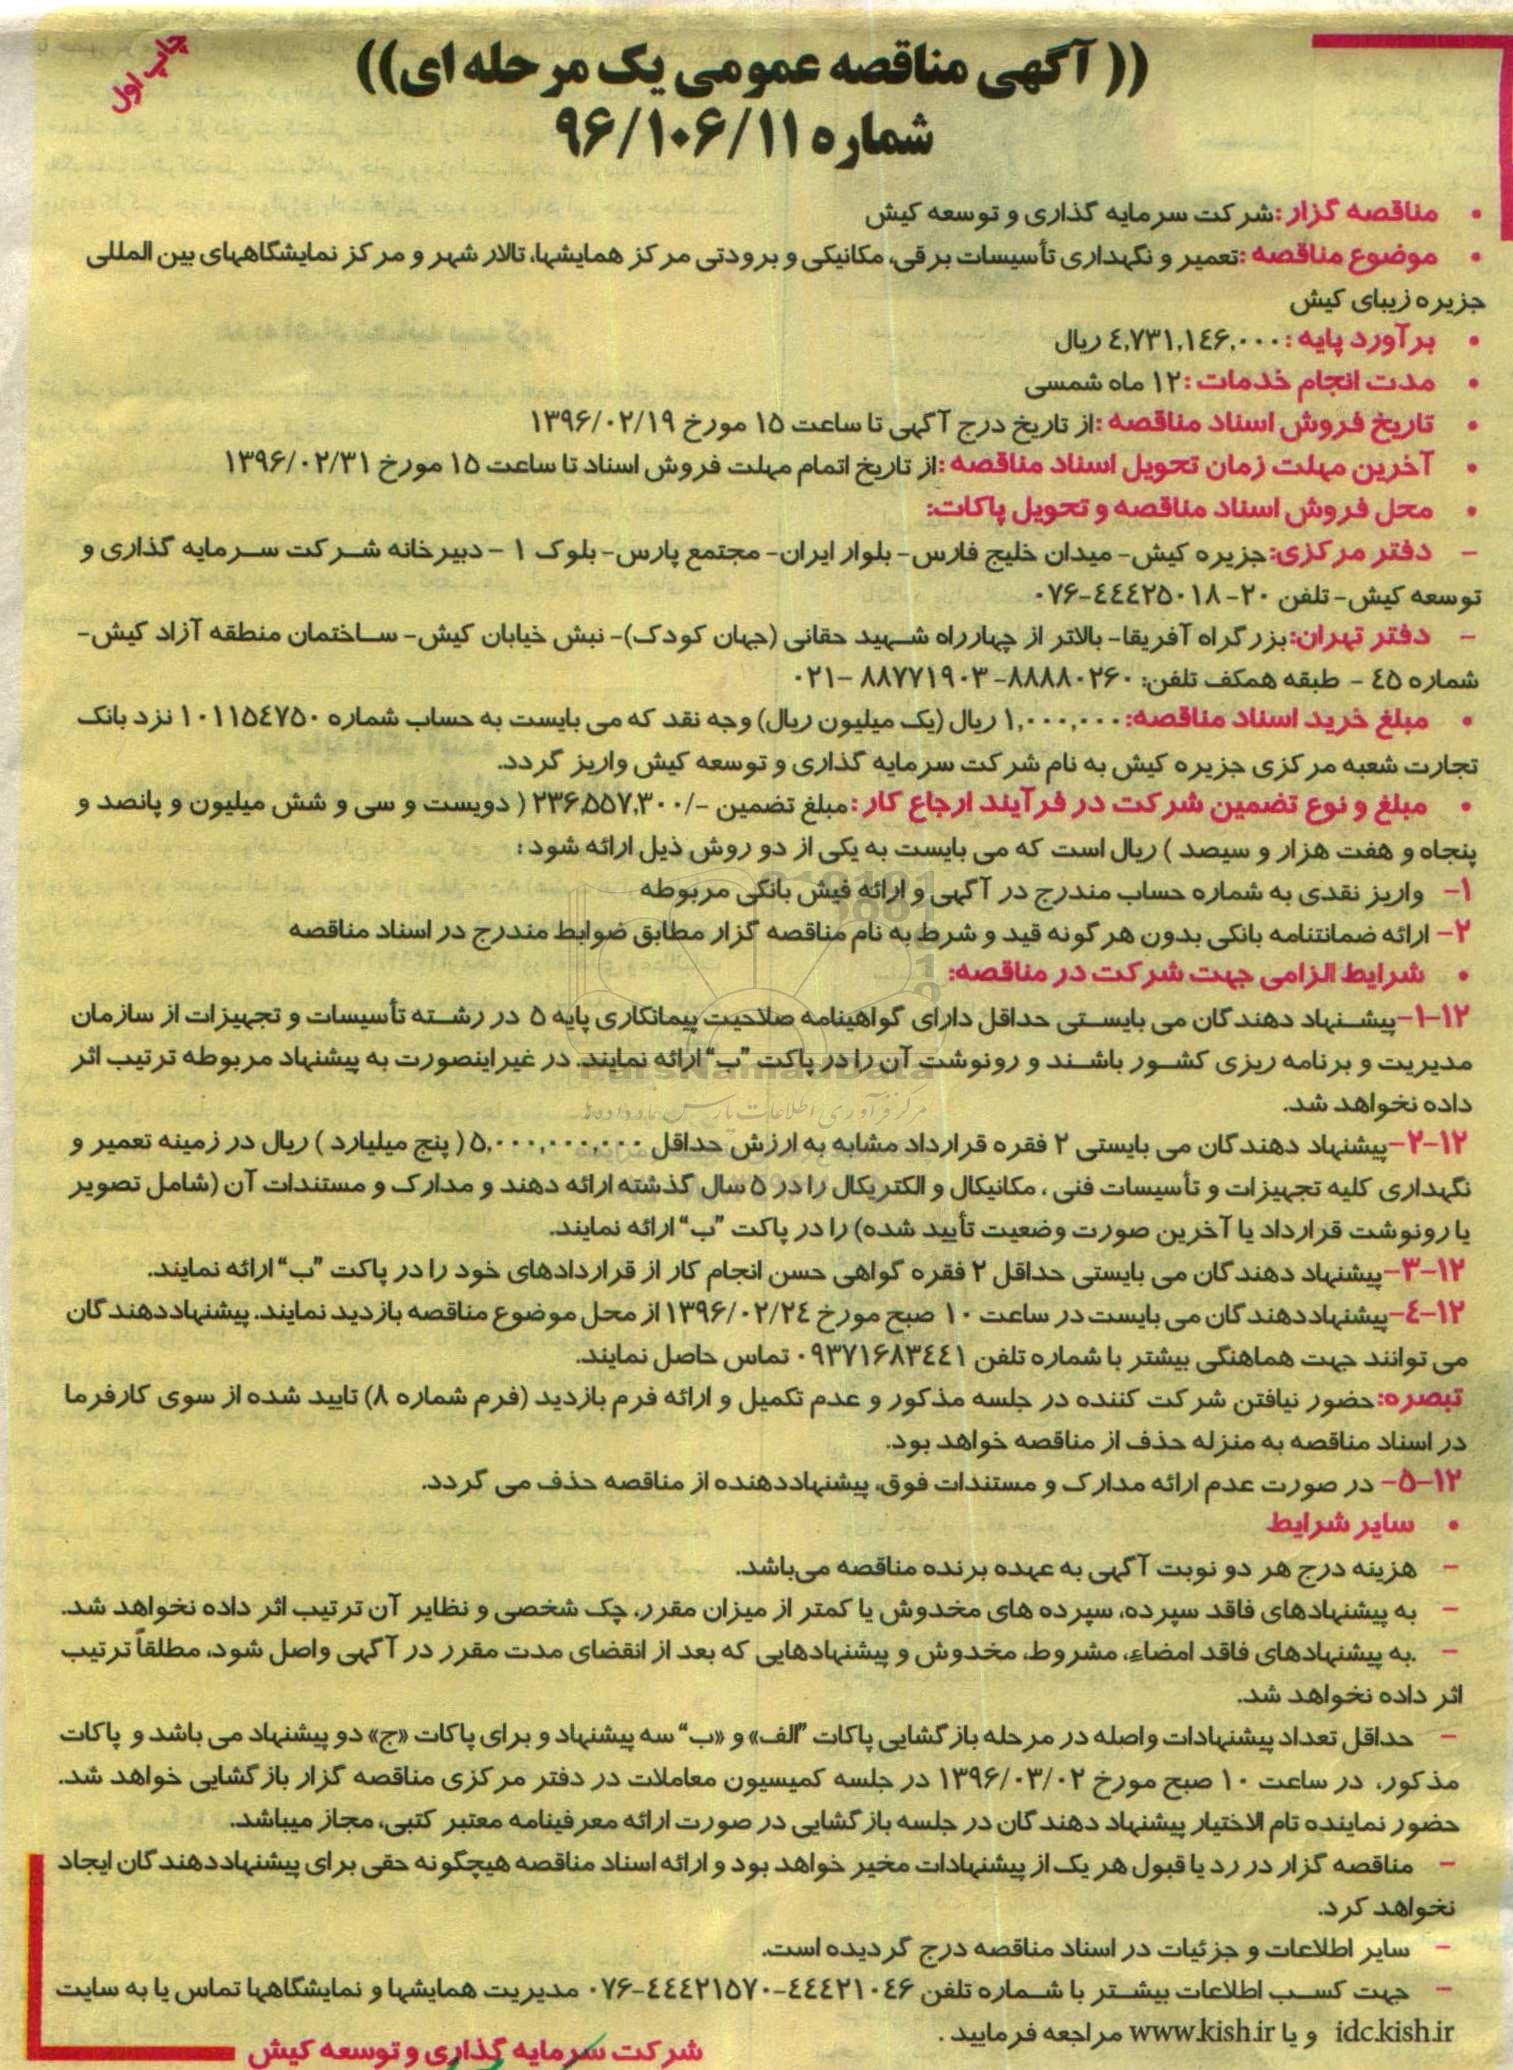 چاپ اول
(( آگهی مناقصه عمومی یک مرحله ای))
شماره ۹۶/۱۰۶/۱۱
• مناقصه گزار: شرکت سرمایه گذاری و توسعه کیش
• موضوع مناقصه: تعمیر و نگهداری تأسیسات برقی، مکانیکی و برودتی مرکز همایشها، تالار شهر و مرکز نمایشگاههای بین المللی
جزیره زیبای کیش
• برآورد پایه: ۴,۷۳۱,۱۴۶,۰۰۰ ریال
• مدت انجام خدمات: ۱۲ ماه شمسی
• تاریخ فروش اسناد مناقصه: از تاریخ درج آگهی تا ساعت ۱۵ مورخ ۱۳۹۶/۰۲/۱۹
• آخرین مهلت زمان تحویل اسناد مناقصه: از تاریخ اتمام مهلت فروش اسناد تا ساعت ۱۵ مورخ ۱۳۹۶/۰۲/۳۱
• محل فروش اسناد مناقصه و تحویل پاکات:
- دفتر مرکزی: جزیره کیش- میدان خلیج فارس- بلوار ایران- مجتمع پارس- بلوک ۱ - دبیرخانه شرکت سرمایه گذاری و
توسعه کیش- تلفن ۲۰-۴۴۴۲۵۰۱۸-۰۷۶
- دفتر تهران: بزرگراه آفریقا- بالاتر از چهارراه شهید حقانی (جهان کودک)- نبش خیابان کیش- ساختمان منطقه آزاد کیش-
شماره ۴۵ - طبقه همکف تلفن: ۸۸۸۸۰۲۶۰- ۸۸۷۷۱۹۰۳ -۰۲۱
• مبلغ خرید اسناد مناقصه: ۱,۰۰۰,۰۰۰ ریال (یک میلیون ریال) وجه نقد که می بایست به حساب شماره ۱۰۱۱۵۴۷۵۰ نزد بانک
تجارت شعبه مرکزی جزیره کیش به نام شرکت سرمایه گذاری و توسعه کیش واریز گردد.
• مبلغ و نوع تضمین شرکت در فرآیند ارجاع کار: مبلغ تضمین -/۲۳۶,۵۵۷,۳۰۰ ( دویست و سی و شش میلیون و پانصد و
پنجاه و هفت هزار و سیصد ) ریال است که می بایست به یکی از دو روش ذیل ارائه شود :
۱- واریز نقدی به شماره حساب مندرج در آگهی و ارائه فیش بانکی مربوطه
۲- ارائه ضمانتنامه بانکی بدون هرگونه قید و شرط به نام مناقصه گزار مطابق ضوابط مندرج در اسناد مناقصه
• شرایط الزامی جهت شرکت در مناقصه:
۱۲-۱-پیشنهاد دهندگان می بایستی حداقل دارای گواهینامه صلاحیت پیمانکاری پایه ۵ در رشته تأسیسات و تجهیزات از سازمان
مدیریت و برنامه ریزی کشور باشند و رونوشت آن را در پاکت "ب" ارائه نمایند. در غیراینصورت به پیشنهاد مربوطه ترتیب اثر
داده نخواهد شد.
۱۲-۲-پیشنهاد دهندگان می بایستی ۲ فقره قرارداد مشابه به ارزش حداقل ۵,۰۰۰,۰۰۰,۰۰۰ ( پنج میلیارد ) ریال در زمینه تعمیر و
نگهداری کلیه تجهیزات و تأسیسات فنی ، مکانیکال و الکتریکال را در ۵ سال گذشته ارائه دهند و مدارک و مستندات آن (شامل تصویر
یا رونوشت قرارداد یا آخرین صورت وضعیت تأیید شده) را در پاکت "ب" ارائه نمایند.
۱۲-۳-پیشنهاد دهندگان می بایستی حداقل ۲ فقره گواهی حسن انجام کار از قراردادهای خود را در پاکت "ب" ارائه نمایند.
۱۲-۴-پیشنهاددهندگان می بایست در ساعت ۱۰ صبح مورخ ۱۳۹۶/۰۲/۲۴ از محل موضوع مناقصه بازدید نمایند. پیشنهاددهندگان
می توانند جهت هماهنگی بیشتر با شماره تلفن ۰۹۳۷۱۶۸۳۴۴۱ تماس حاصل نمایند.
تبصره: حضور نیافتن شرکت کننده در جلسه مذکور و عدم تکمیل و ارائه فرم بازدید (فرم شماره ۸) تایید شده از سوی کارفرما
در اسناد مناقصه به منزله حذف از مناقصه خواهد بود.
۱۲-۵- در صورت عدم ارائه مدارک و مستندات فوق، پیشنهاددهنده از مناقصه حذف می گردد.
• سایر شرایط
- هزینه درج هر دو نوبت آگهی به عهده برنده مناقصه می‌باشد.
- به پیشنهادهای فاقد سپرده، سپرده های مخدوش یا کمتر از میزان مقرر، چک شخصی و نظایر آن ترتیب اثر داده نخواهد شد.
- .به پیشنهادهای فاقد امضاء، مشروط، مخدوش و پیشنهادهایی که بعد از انقضای مدت مقرر در آگهی واصل شود، مطلقاً ترتیب
اثر داده نخواهد شد.
- حداقل تعداد پیشنهادات واصله در مرحله بازگشایی پاکات "الف» و «ب" سه پیشنهاد و برای پاکات «ج» دو پیشنهاد می باشد و پاکات
مذکور، در ساعت ۱۰ صبح مورخ ۱۳۹۶/۰۳/۰۲ در جلسه کمیسیون معاملات در دفتر مرکزی مناقصه گزار بازگشایی خواهد شد.
حضور نماینده تام الاختیار پیشنهاد دهندگان در جلسه بازگشایی در صورت ارائه معرفینامه معتبر کتبی، مجاز میباشد.
- مناقصه گزار در رد یا قبول هر یک از پیشنهادات مخیر خواهد بود و ارائه اسناد مناقصه هیچگونه حقی برای پیشنهاددهندگان ایجاد
نخواهد کرد.
- سایر اطلاعات و جزئیات در اسناد مناقصه درج گردیده است.
- جهت کسب اطلاعات بیشتر با شماره تلفن ۴۴۴۲۱۰۴۶-۴۴۴۲۱۵۷۰-۰۷۶ مدیریت همایشها و نمایشگاهها تماس یا به سایت
idc.kish.ir و یا www.kish.ir مراجعه فرمایید .
شرکت سرمایه گذاری و توسعه کیش